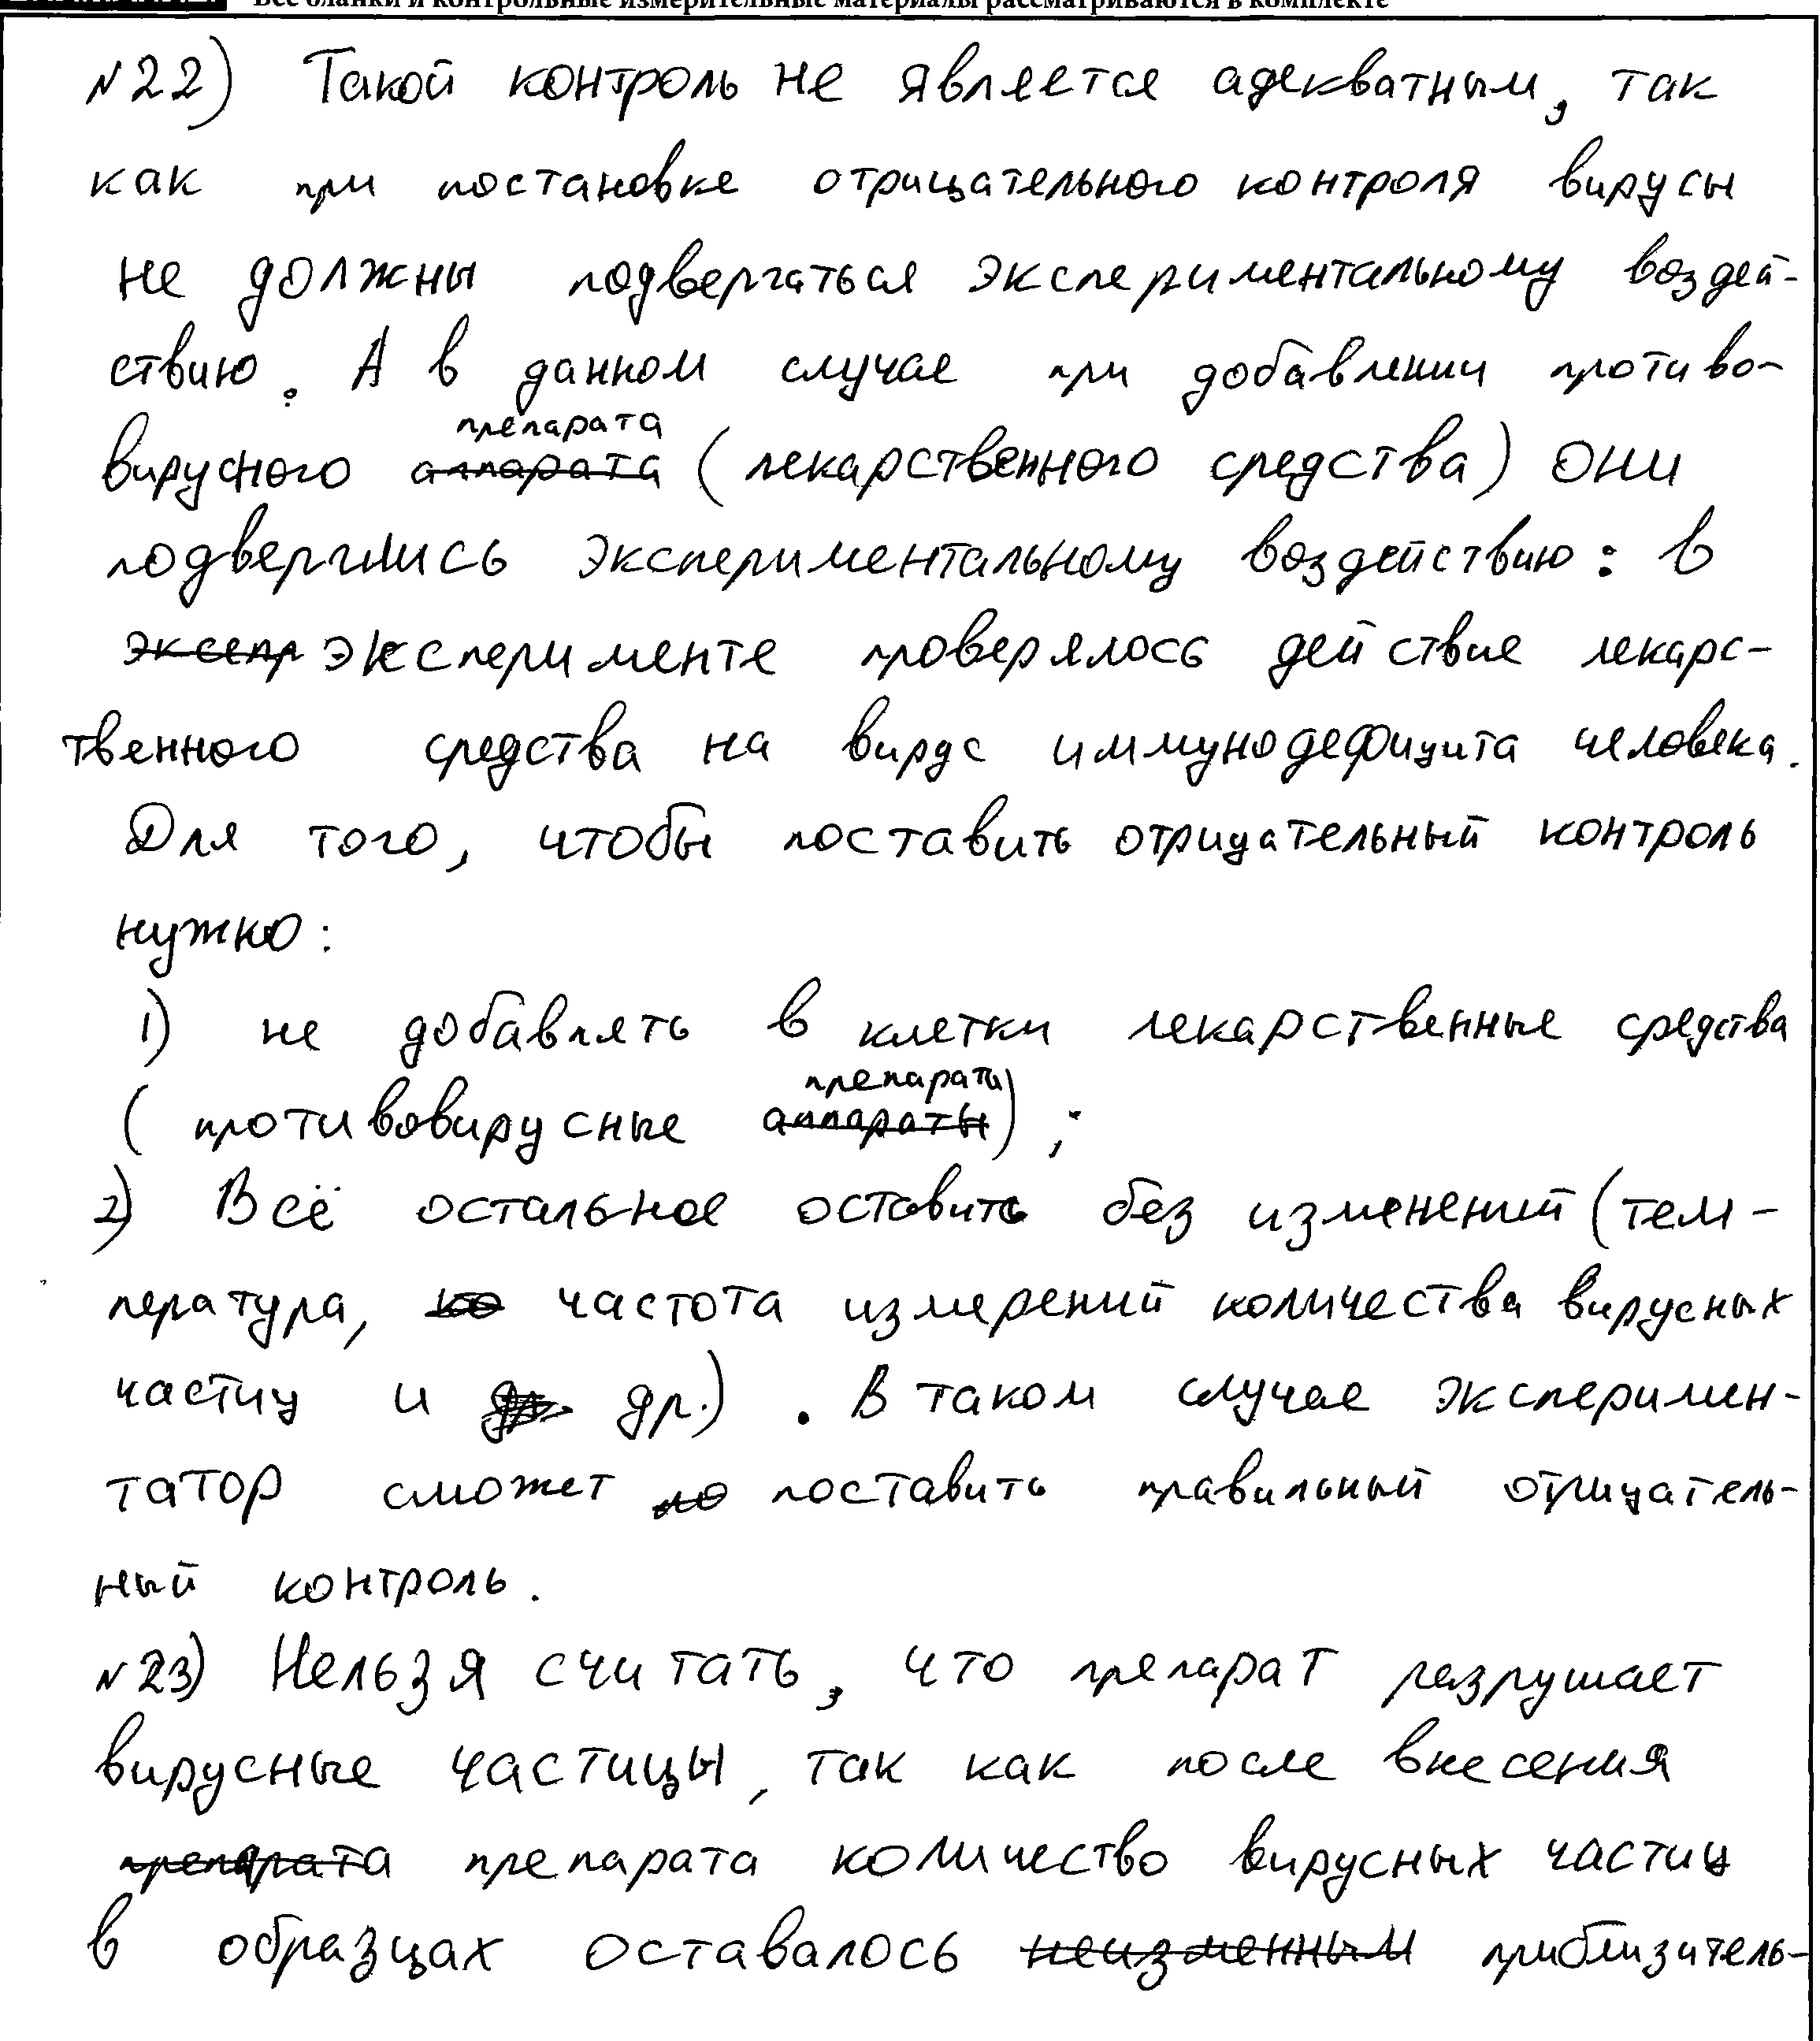 Все бланки и контрольные измерительные материалы рассматриваются в комплекте
№22) Такой контроль не является адекватным, так
как при постановке отрицательного контроля вирусы
не должны подвергаться экспериментальному воздей-
ствию. А в данном случае при добавлении противо-
препарата
вирусного аппарата (лекарственного средства) они
подверглись экспериментальному воздействию: в
эксепр эксперименте проверялось действие лекарс-
твенного средства на вирус иммунодефицита человека.
Для того, чтобы поставить отрицательный контроль
нужно:
1) не добавлять в клетки лекарственные средства
препараты
(противовирусные аппараты);
2) Всё остальное оставить без изменений (тем-
пература, ко частота измерений количества вирусных
частиц и др. др.). В таком случае эксперимен-
татор сможет по поставить правильный отрицатель-
ный контроль.
№23) Нельзя считать, что препарат разрушает
вирусные частицы, так как после внесения
препарата препарата количество вирусных частиц
в образцах оставалось неизменным приблизитель-